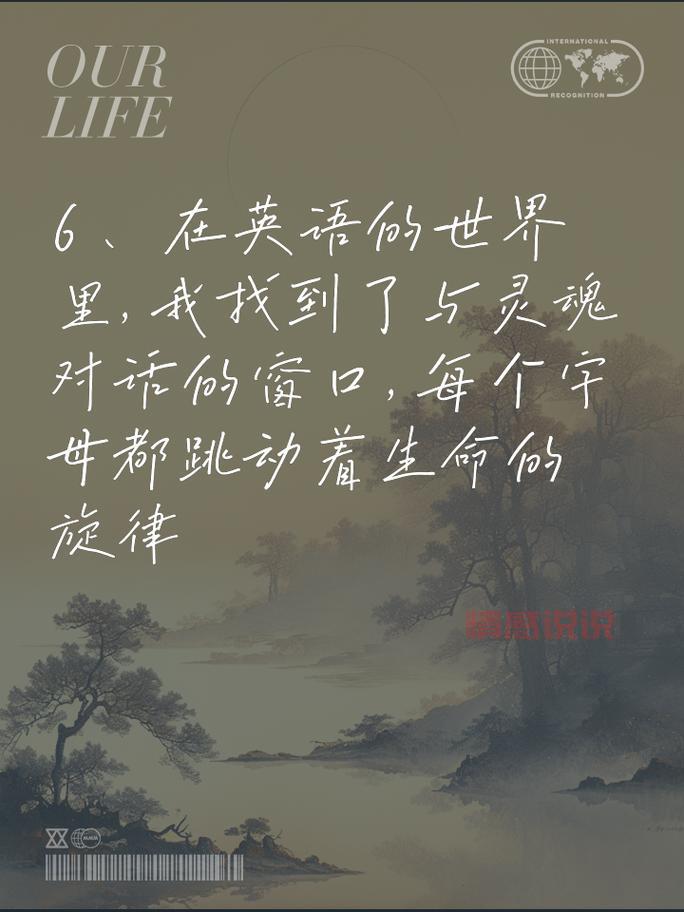 OUR
LIFE
INTERNATIONAL
RECOGNITION
6、在英语的世界
里,我找到了与灵魂
对话的窗口,每个字
母都跳动着生命的
旋律
情感说说